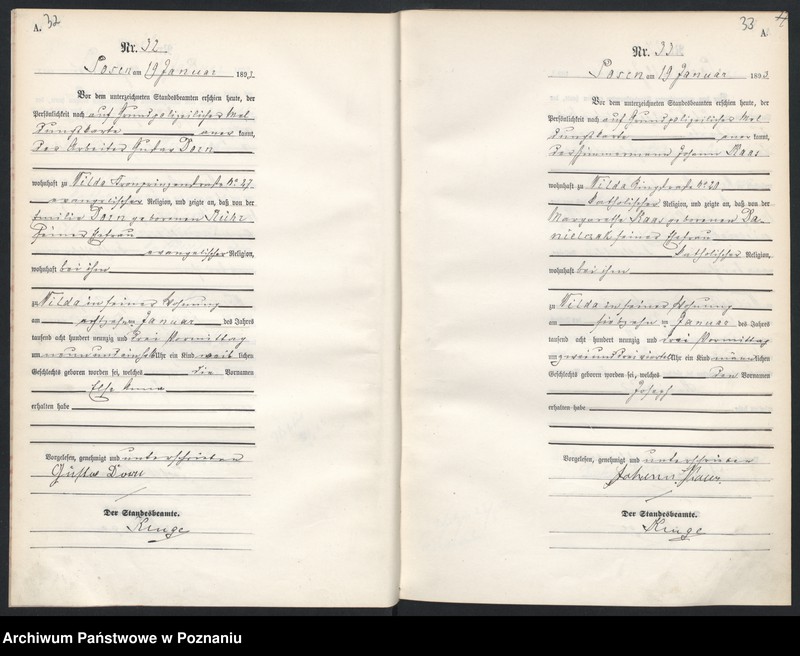 A. 32
Nr. 32
Posen am 19 Januar 1893.
Vor dem unterzeichneten Standesbeamten erschien heute, der
Persönlichkeit nach auf Grund polizeilicher Mel
dungskarte anerkannt,
der Arbeiter Gustav Dorn
wohnhaft zu Wilda Kronprinzenstraße No 37
evangelischer Religion, und zeigte an, daß von der
Emilie Dorn geborenen Rühr
seiner Ehefrau
evangelischer Religion,
wohnhaft bei ihm
zu Wilda in seiner Wohnung
am achtzehn ten Januar des Jahres
tausend acht hundert neunzig und drei Vormittag
um neun und einhalb Uhr ein Kind weib lichen
Geschlechts geboren worden sei, welches die Vornamen
Else
erhalten habe
Vorgelesen, genehmigt und unterschrieben
Gustav Dorn
Der Standesbeamte.
33 A.
Nr. 33
Posen am 19 Januar 1893
Vor dem unterzeichneten Standesbeamten erschien heute, der
Persönlichkeit nach auf Grund polizeilicher Mel
dungskarte anerkannt,
der Zimmermann Johann Kaas
wohnhaft zu Wilda Ringstraße No 20
katholischer Religion, und zeigte an, daß von der
Margarethe Kaas geborenen Da-
nielczak seiner Ehefrau
katholischer Religion,
wohnhaft bei ihm
zu Wilda in seiner Wohnung
am siebzehn ten Januar des Jahres
tausend acht hundert neunzig und drei Vormittag
um zwei und drei viertel Uhr ein Kind männlichen
Geschlechts geboren worden sei, welches den Vornamen
Joseph
erhalten habe
Vorgelesen, genehmigt und unterschrieben
Johann
Der Standesbeamte.
Archiwum Państwowe w Poznaniu